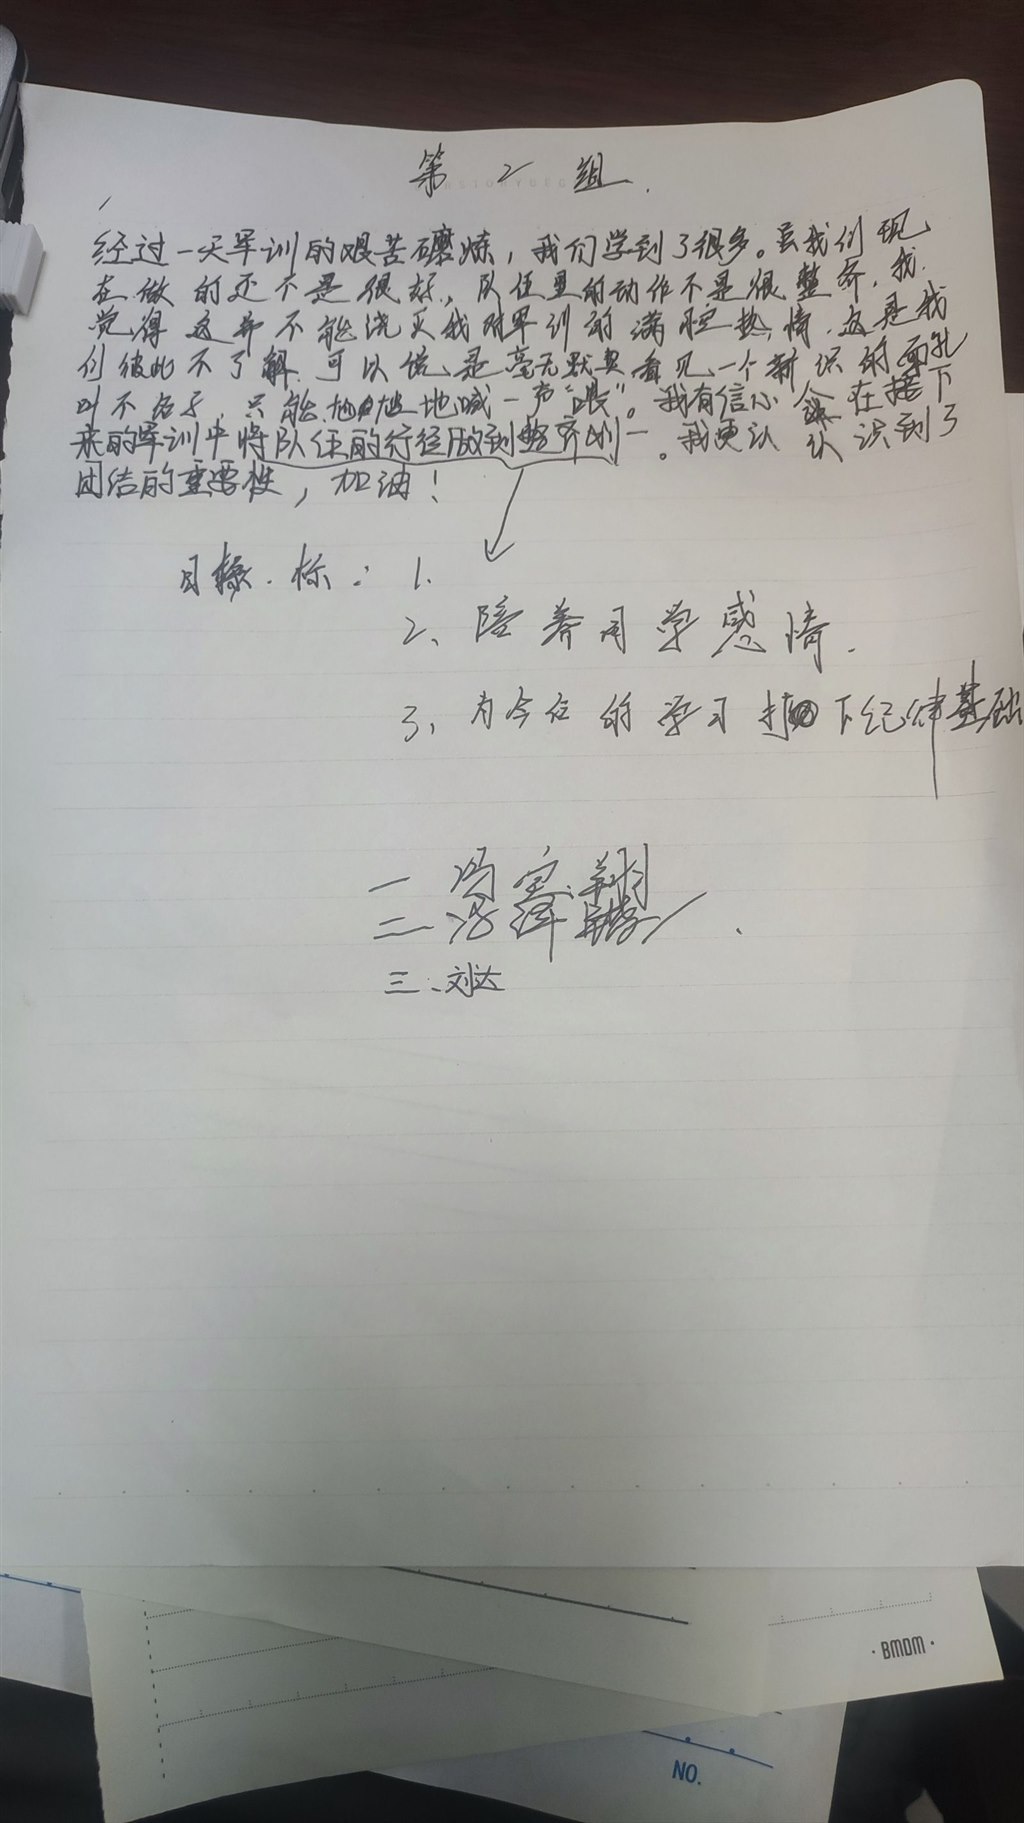 第 2 组
经过一天军训的艰苦磨炼，我们学到了很多。虽我们现
在做的还不是很好，队伍里的动作不是很整齐，我
觉得这并不能浇灭我对军训的满腔热情，这是我
们彼此不了解，可以说是毫无默契看见一个新识的面孔
叫不名字，只能尴尬地喊一声“喂”。我有信心 在接下
来的军训中将队伍的行径做到整齐划一。我更认 识到了
团结的重要性，加油！
目 标：1.
2、陪养同学感情.
3、为今后的学习打下纪律基础
一
二
三、刘达
·BMDM·
NO.